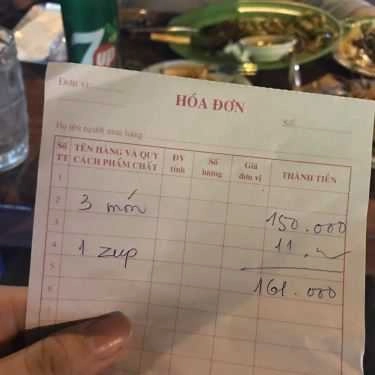 7
UP
Đơn vị:
HÓA ĐƠN
Số:
Họ tên người mua hàng
Số TT TÊN HÀNG VÀ QUY CÁCH PHẨM CHẤT ĐV tính Số lượng Giá đơn vị THÀNH TIỀN
1
2 3 món 150.000
3
4 1 zup 11.
5
6 161.000